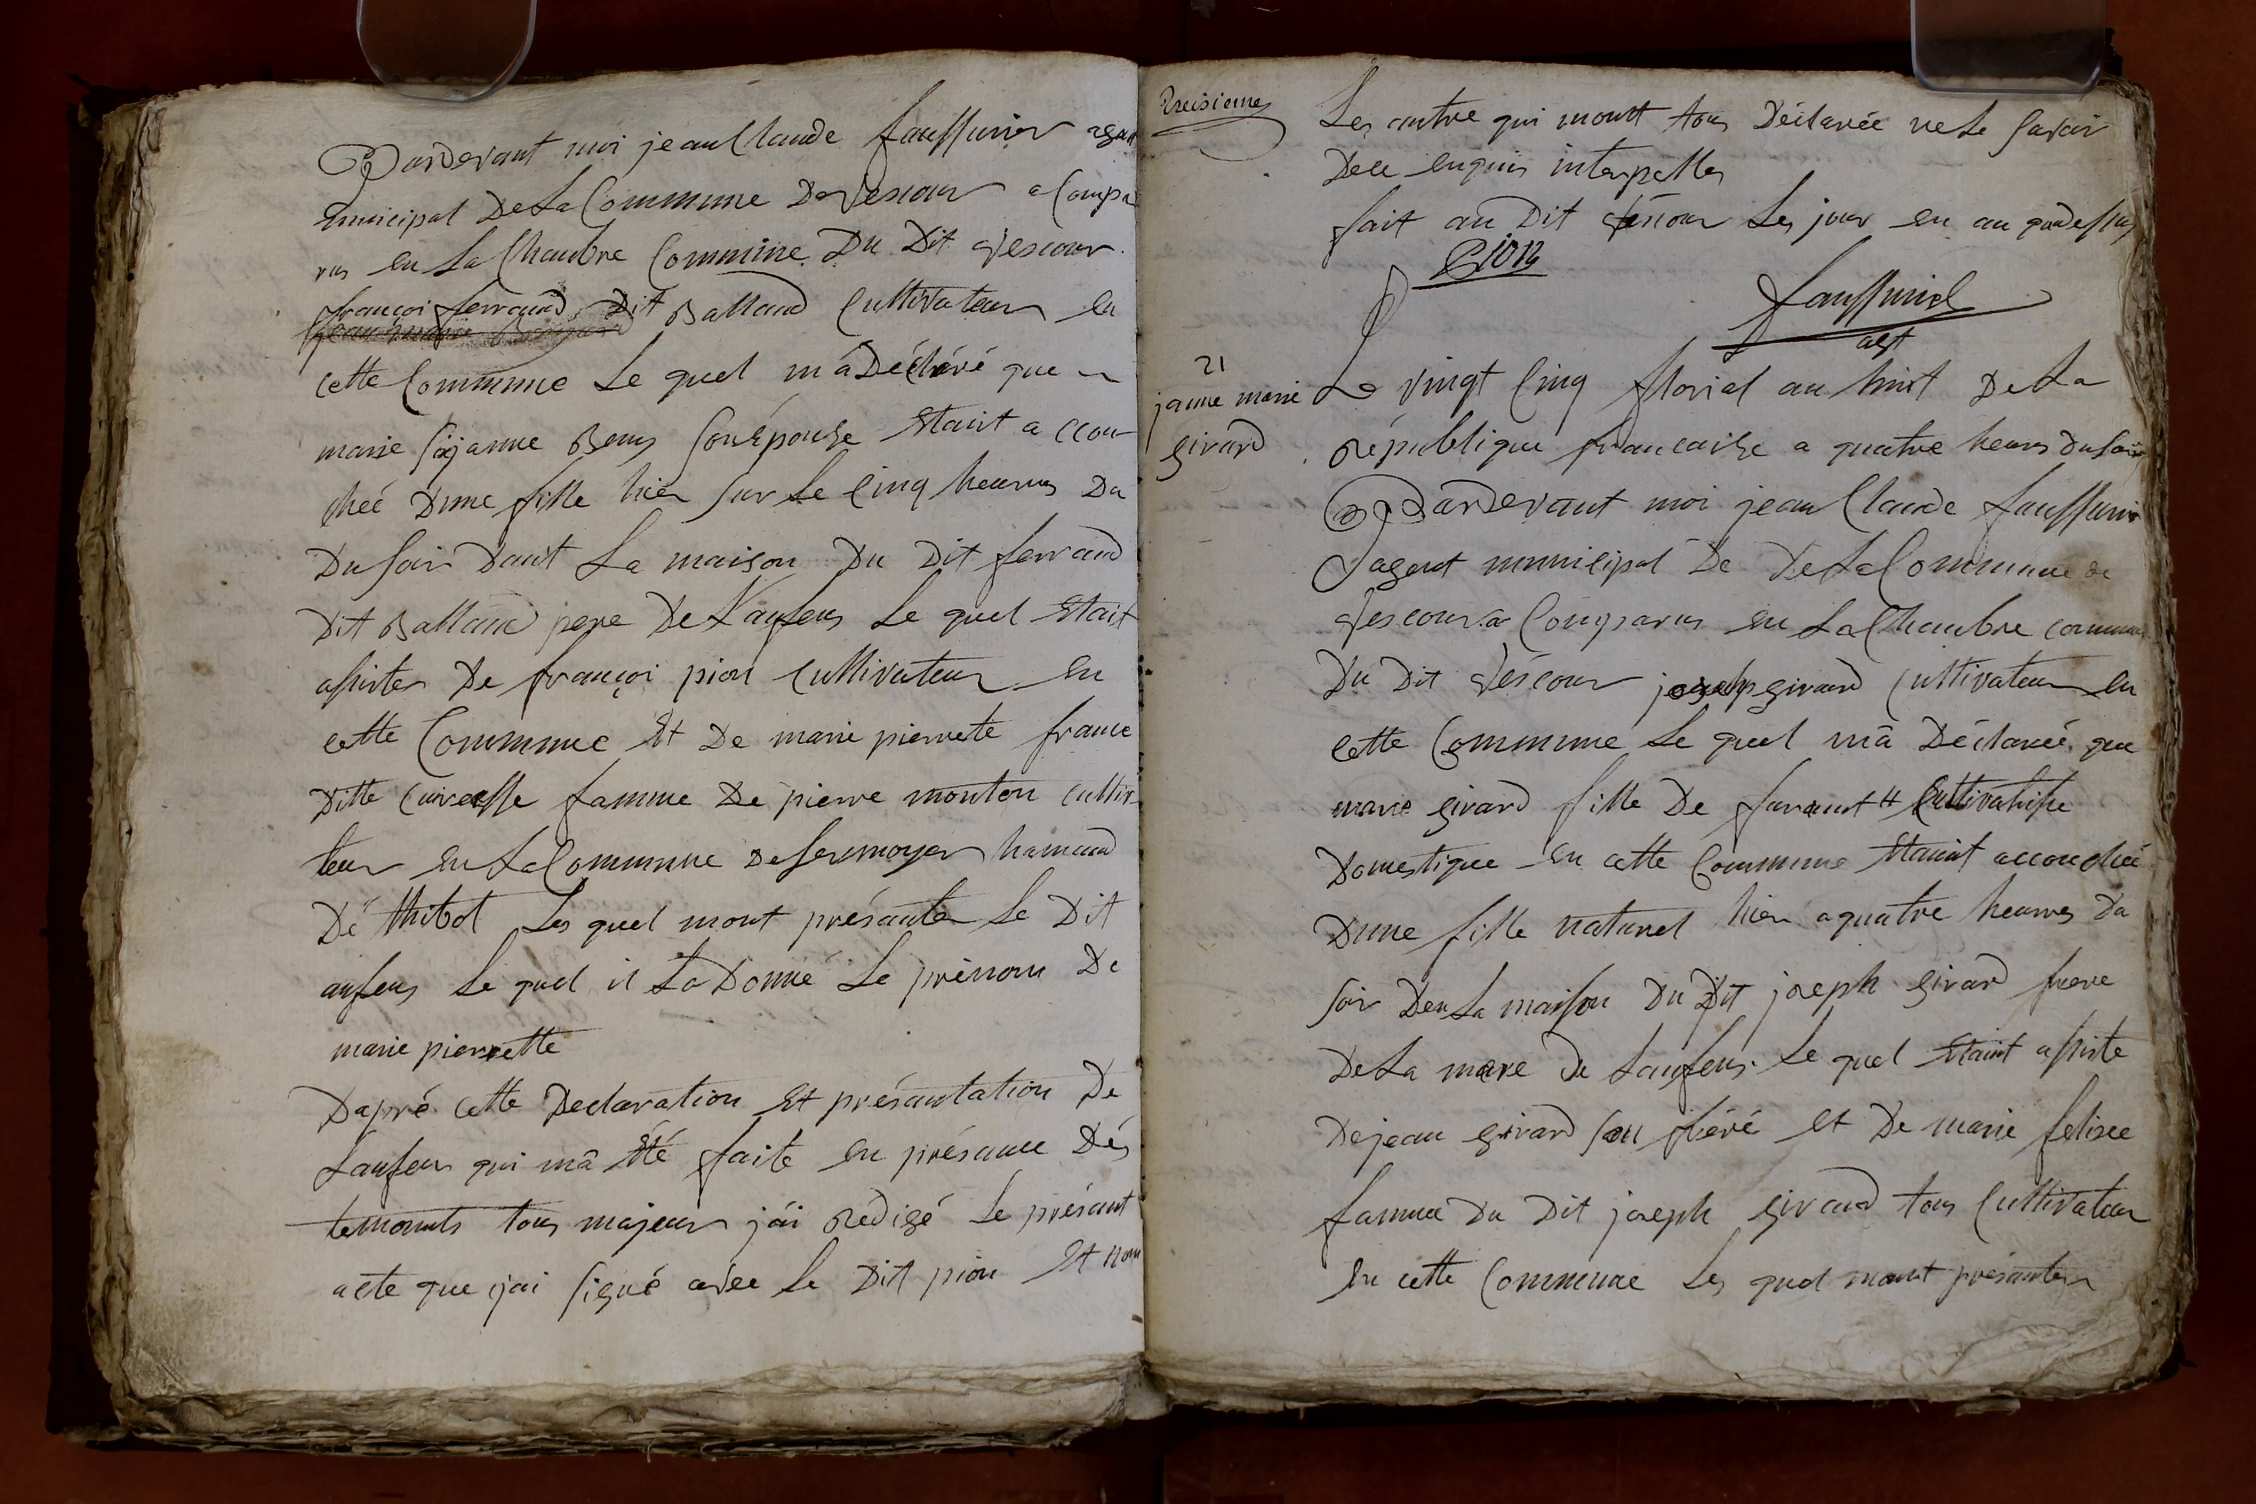 Pardevant moi jean Claude faussurier agent
municipal De La Commune De vescour a Compa
rus en La Chambre Commune Du Dit vescour
françoi ferraud Dit Balland Cultivateur en
cette Commune Le quel m'a Décléré que
marie jeanne son épouse Etait a ccou
cheé D'une fille hier sur Le Cinq heurres Du
Du soir Dant La maison Du Dit ferraud
Dit Balland pere De L'anfens Le quel Etait
assister De françoi pion Cultivateur en
cette Commune Et De marie pierrete france
Ditte famme De pierre monton Cultiva
teur en La Commune De sermoyer hameaud
Dé thibot Les quel mont présanter Le Dit
anfens Le quel il La Donné Le prénom De
marie pierrette
Dapré cette Declaration Et présantation De
Lanfens qui mâ été faite en présance Dés
temonts tous majeur jái Redigé Le présant
acte que jai signé avée Le Dit pion Et non
Les autre qui mont tous Déclarée ne Le savoir
Dece enquis interpelles
fait au Dit vescour Les jour en an quedessus
Pion
faussurier
agt
21
janne marie
girard
Le vingt Cinq florial an huit De La
République francaise a quatre heurs Du soir
Pardevant moi jean Claude faussurier
agent municipal De De La Commune de
vescour a Comparus en La Chambre commune
Du Dit véscour joseph girard Cultivateur en
cette Commune Le quel mâ Déclareé que
marie girard fille De
Domestique en cette Commune Etaint accoucheé
Dune fille naturel hier a quatre heurres Du
soir Den La maison Du Dit joseph girard frere
De La mere De Lanfens Le quel Etaint assiste
De jean girard son fréré Et De marie felisee
famme Du Dit joseph girard tous Cultivateur
en cette Commune Les quel mont présanter